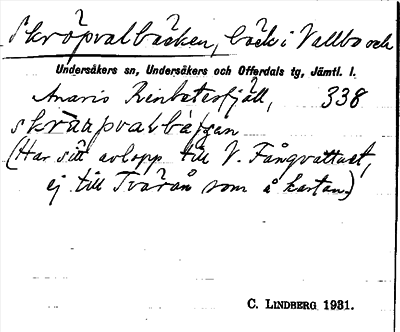 Skröpvalbäcken, bäck i Vallbo och
Undersåkers sn, Undersåkers och Offerdals tg, Jämtl. l.
Anaris Renbetesfjäll, 338
skråapvalbäʃʒan
(Har sitt avlopp till V. Fångvattnet,
ej till Tvärån som å kartan.)
C. LINDBERG 1931.